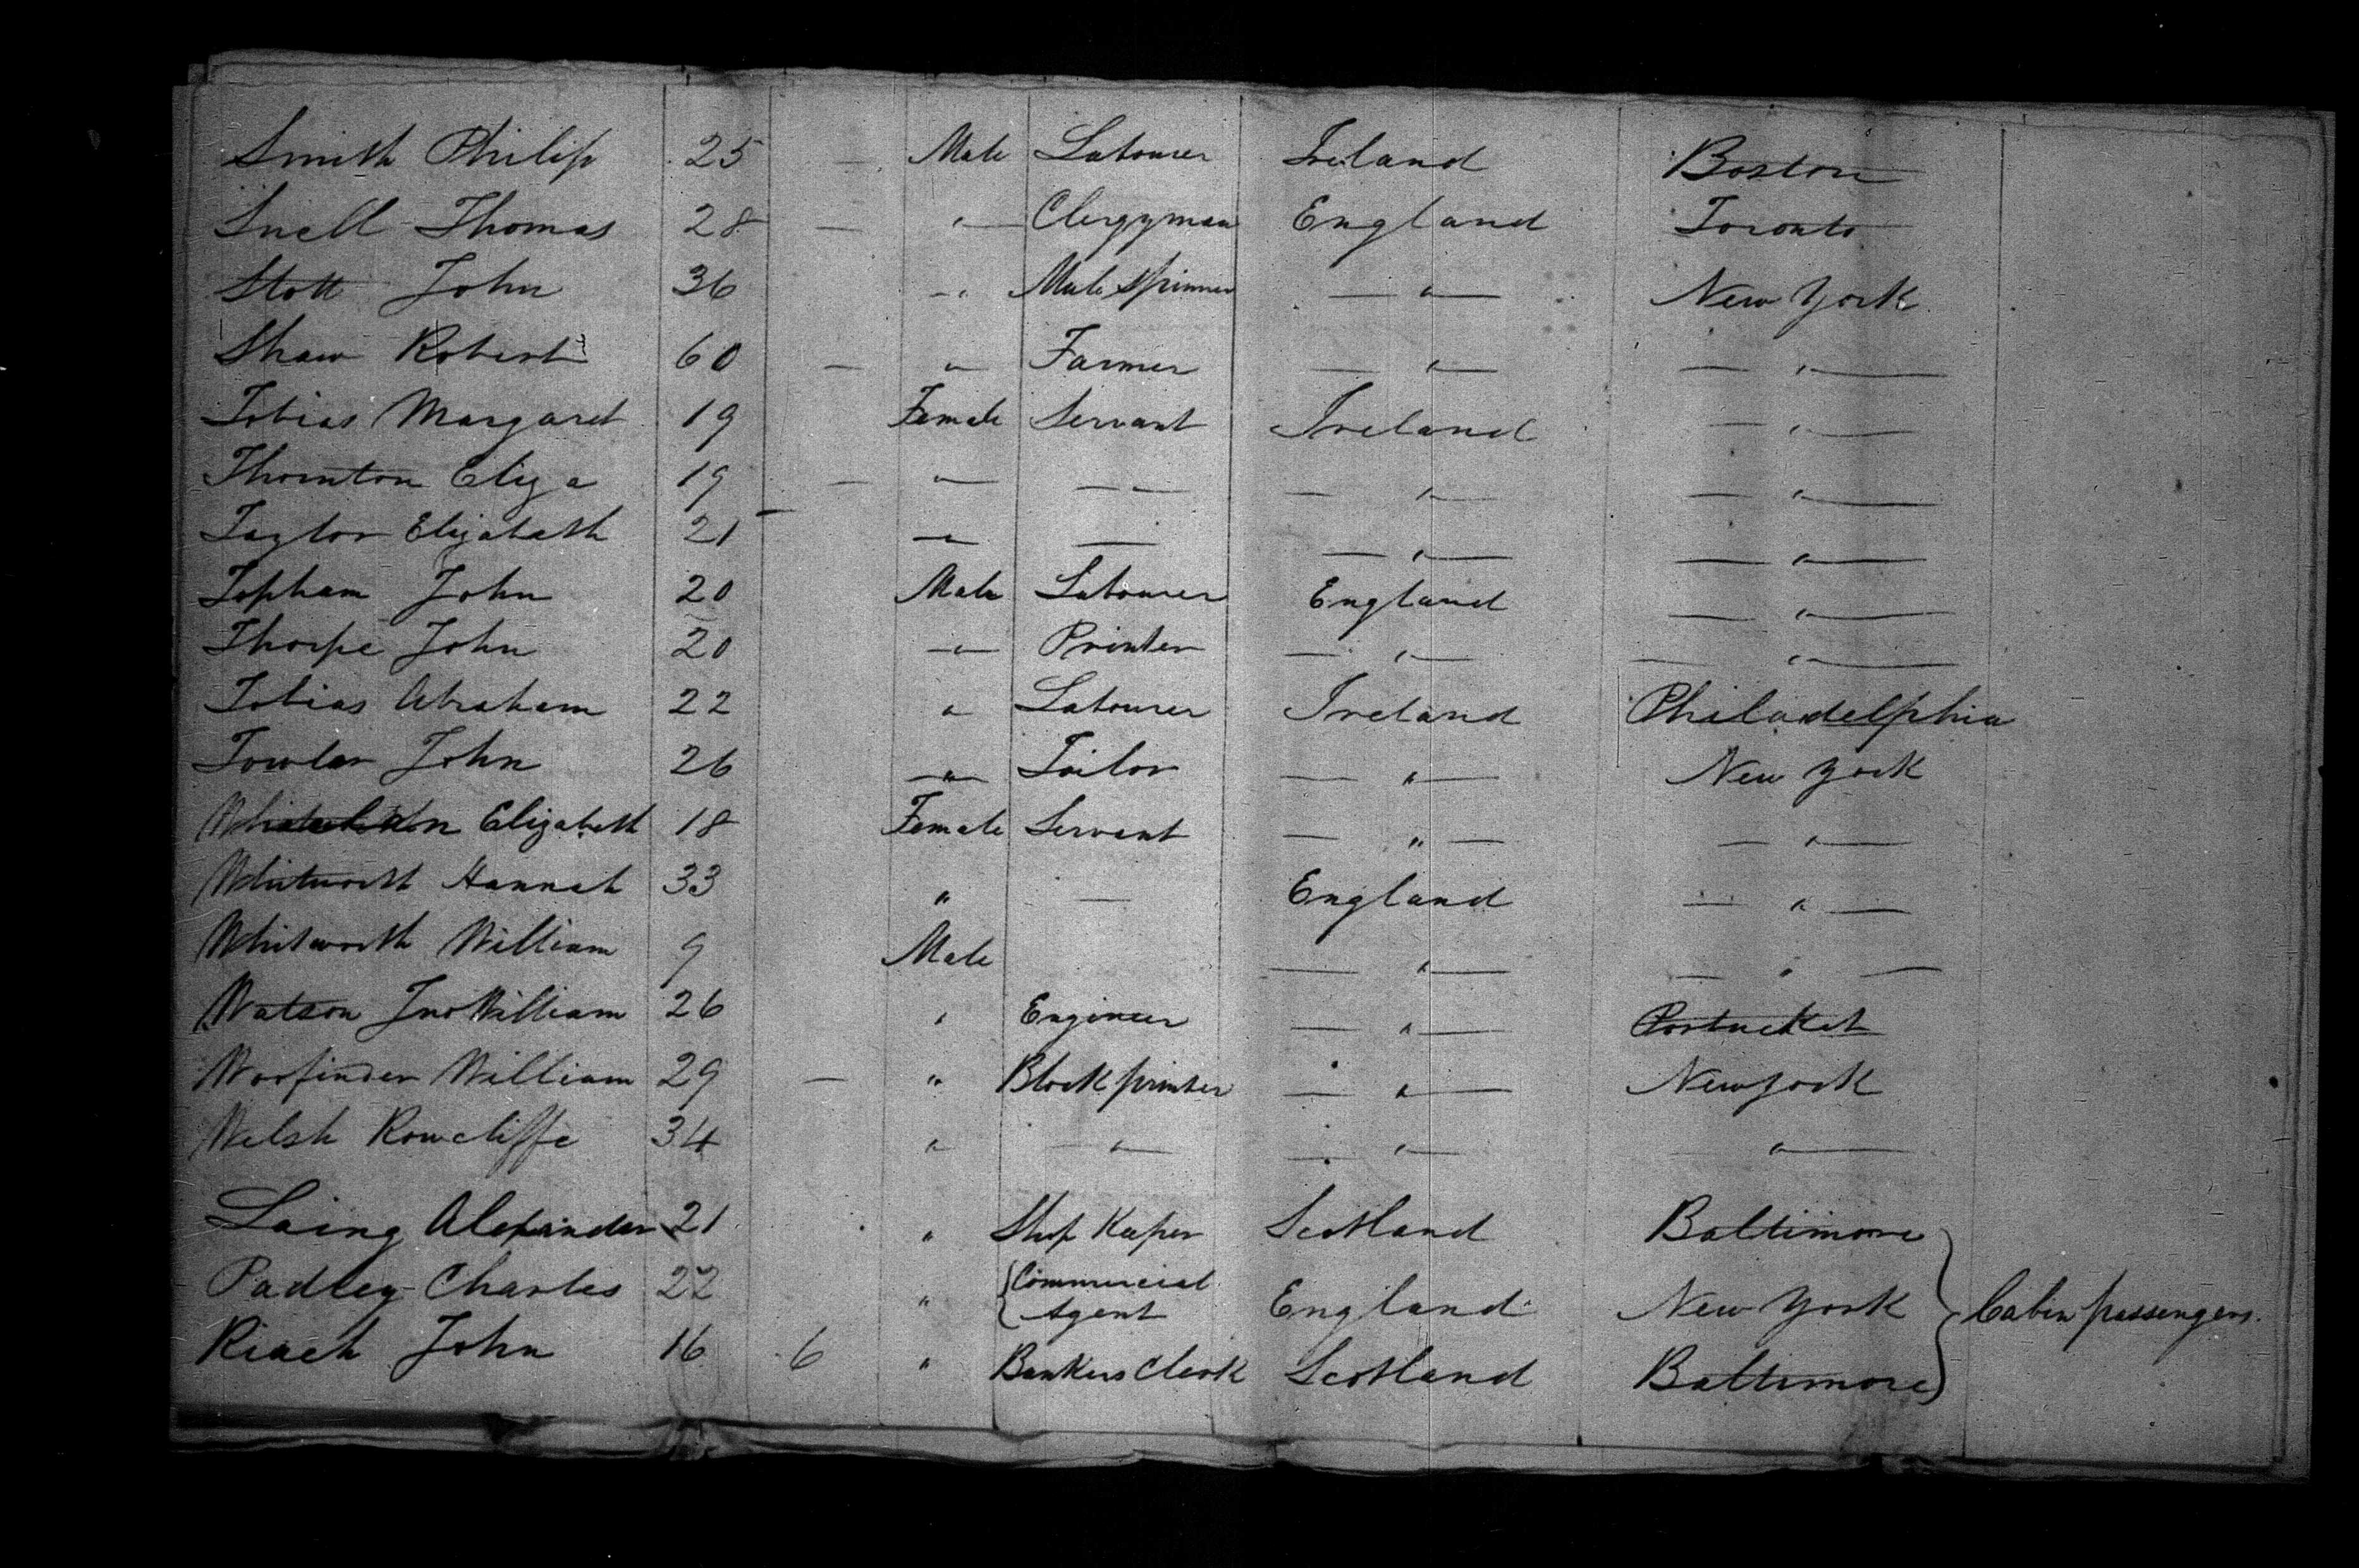 Smith Philip 25 — Male Labourer Ireland Boston
Snell Thomas 28 — " Clergyman England Toronto
Stott John 36 " Mule Spinner — " — New York
Shaw Robert 60 — " Farmer — " — — " —
Tobias Margaret 19 Female Servant Ireland — " —
Thornton Eliza 19 — " — — — " — — " —
Taylor Elizabeth 21 — " — — " — — " —
Topham John 20 Male Labourer England — " —
Thorpe John 20 " Printer — " — — " —
Tobias Abraham 22 " Labourer Ireland Philadelphia
Towler John 26 " Tailor — " — New York
Elizabeth 18 Female Servant — " — — " —
Whitworth Hannah 33 " — England — " —
Whitworth William 9 Male — " — — " —
Watson Jno William 26 " Engineer — " — Portucket
Worfinder William 29 — " Block printer — " — New York
Welsh Rowcliffe 34 " — " — — " — — " —
Laing Alexander 21 " Shop Keeper Scotland Baltimore
Padley Charles 22 " Commercial Agent England New York Cabin passengers.
Riach John 16 6 " Bankers Clerk Scotland Baltimore